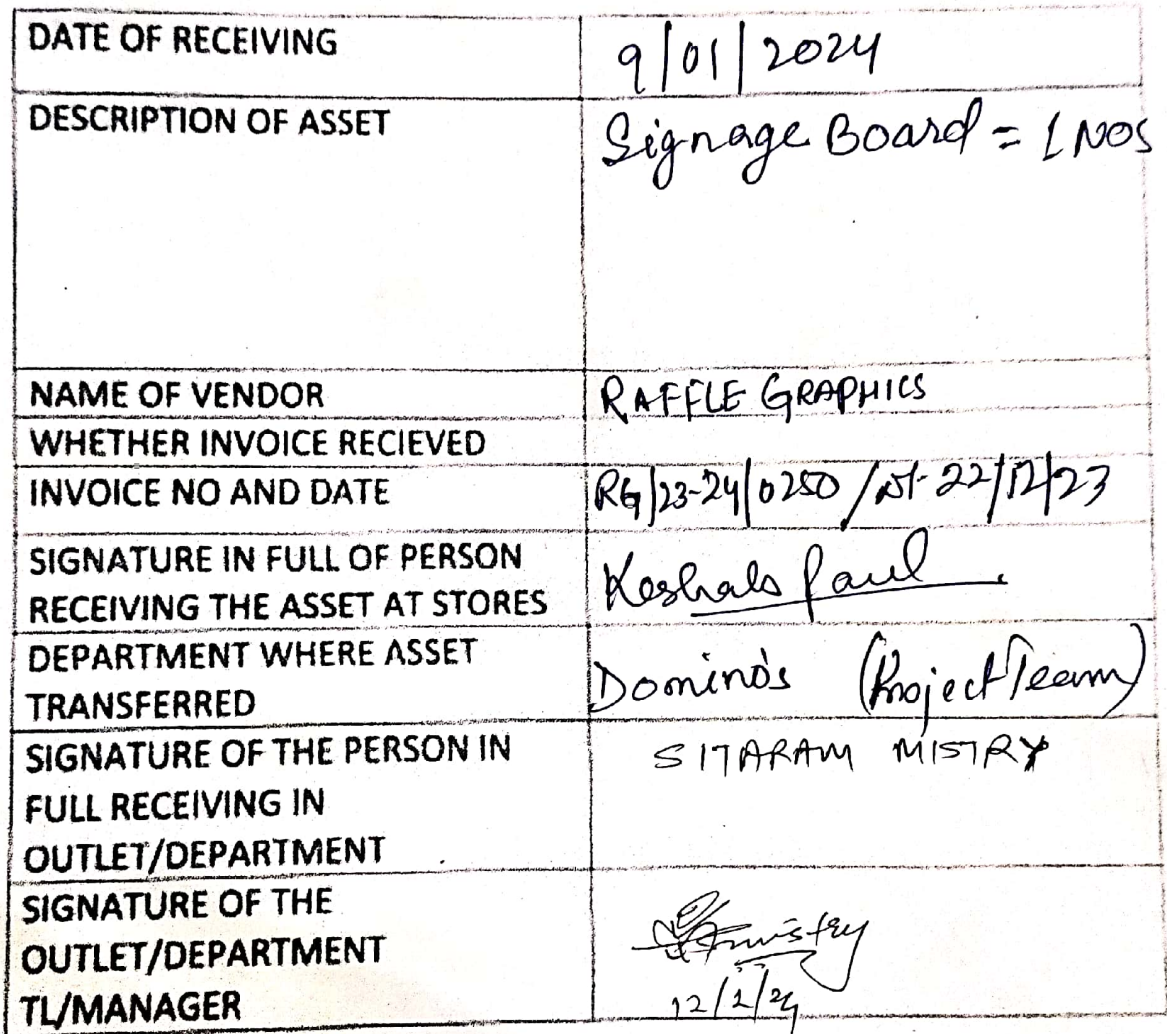 DATE OF RECEIVING 9/01/2024
DESCRIPTION OF ASSET Signage Board = 1 NOS
NAME OF VENDOR RAFFLE GRAPHICS
WHETHER INVOICE RECIEVED
INVOICE NO AND DATE RG/23-24/0250/Dt-22/12/23
SIGNATURE IN FULL OF PERSON
RECEIVING THE ASSET AT STORES
Paul
DEPARTMENT WHERE ASSET
TRANSFERRED
Domino's (Project Team)
SIGNATURE OF THE PERSON IN
FULL RECEIVING IN
OUTLET/DEPARTMENT
SITARAM MISTRY
SIGNATURE OF THE
OUTLET/DEPARTMENT
TL/MANAGER
Mistry
12/1/24